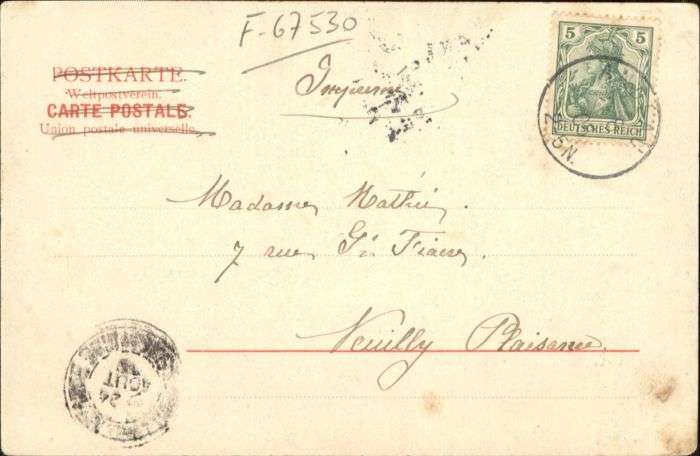 F-67530
POSTKARTE.
Weltpostverein.
CARTE POSTALE.
Union postale universelle.
Imprimé
5 5
DEUTSCHES REICH
2-5N.
Madame Mathieu.
7 rue
Neuilly Plaisance.
24
AOUT